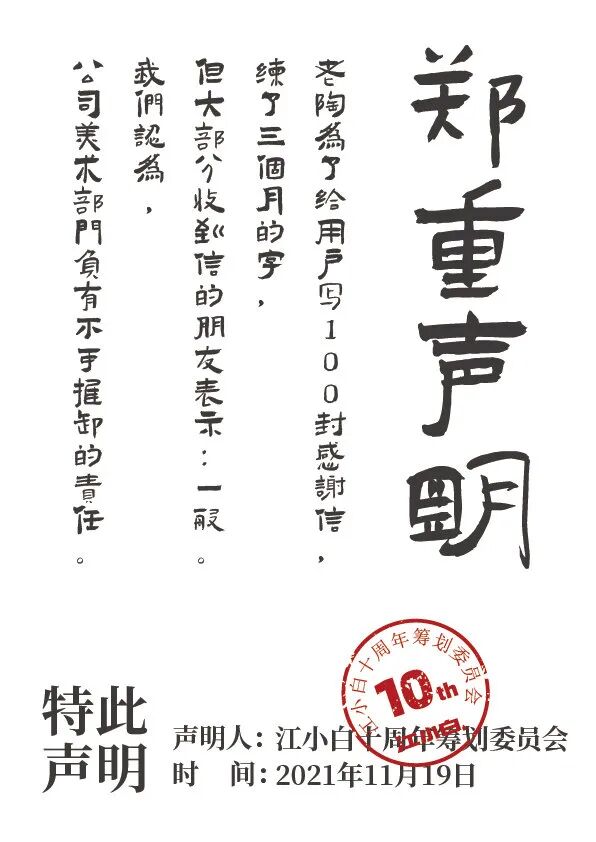 郑重声明
老陶為了给用戶写100封感謝信，
练了三個月的字，
但大部分收到信的朋友表示：一般。
我們認為，
公司美术部門負有不可推卸的責任。
江小白十周年筹划委员会
10th
江小白
特此
声明
声明人：江小白十周年筹划委员会
时 间：2021年11月19日